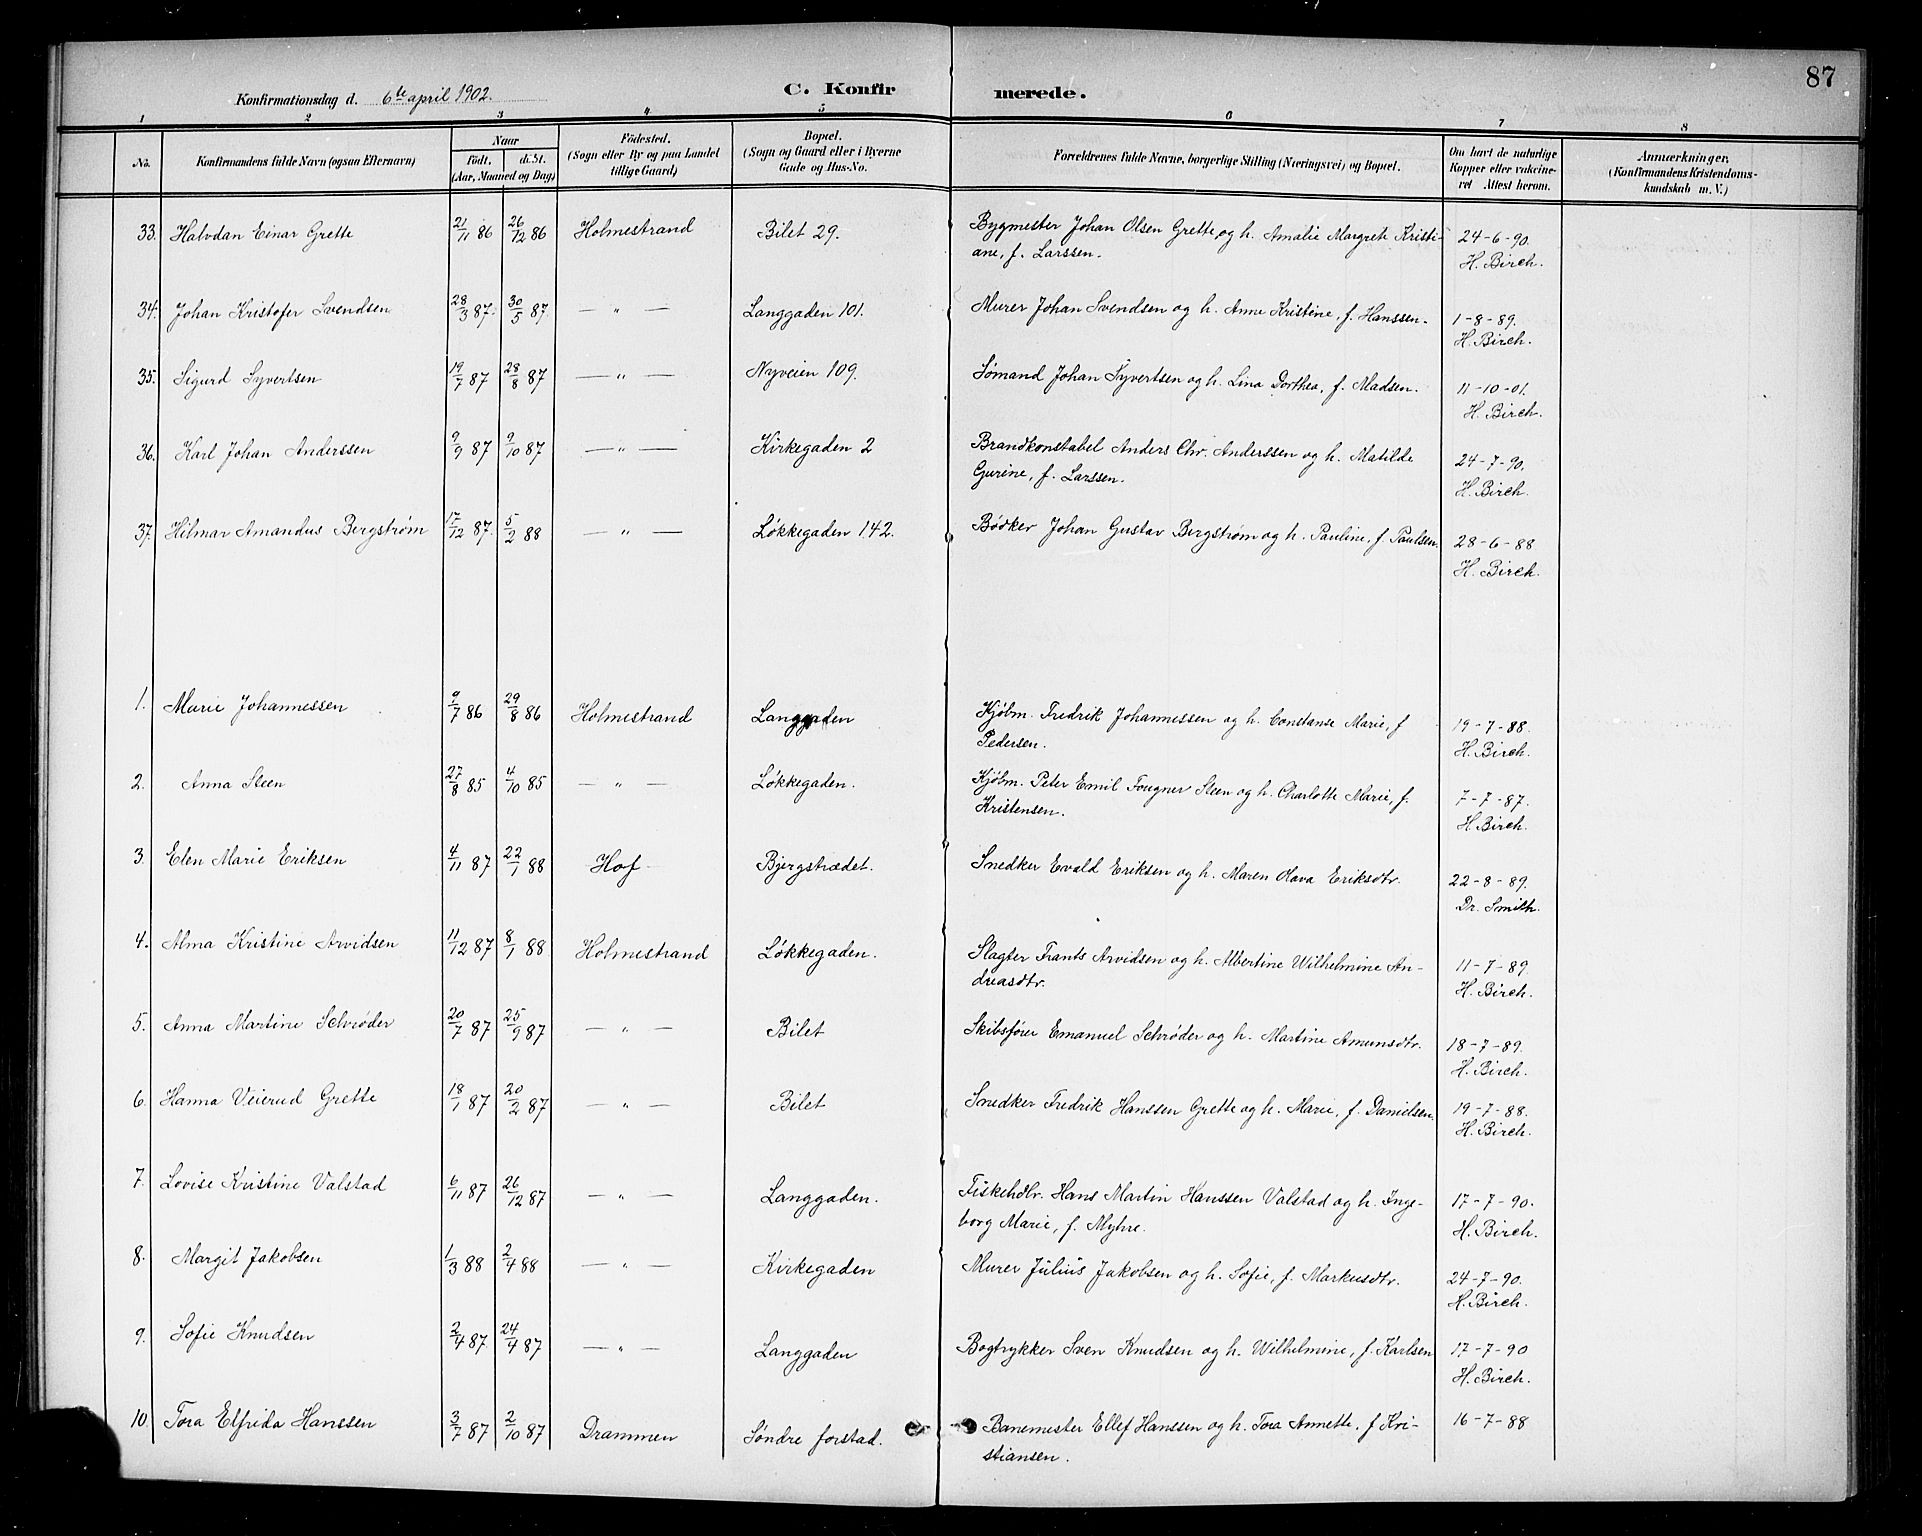 87
Konfirmationsdag d. 6te april 1902.
C. Konfirmerede.
1 2 3 4 5 6 7 8
No.
Konfirmandens fulde Navn (ogsaa Efternavn)
Naar
Födt. döbt.
(Aar, Maaned og Dag)
Födested.
(Sogn eller By og paa Landet
tillige Gaard)
Bopæl.
(Sogn og Gaard eller i Byerne
Gade og Hus-No.
Forældrenes fulde Navne, borgerlige Stilling (Næringsvei) og Bopæl.
Om havt de naturlige
Kopper eller vakcine-
ret Attest herom.
Anmærkninger,
(Konfirmandens Kristendoms-
kundskab m. V.)
33. Halvdan Einar Grette 21/11 86 26/12 86 Holmestrand Bilet 29. Bygmester Johan Olsen Grette og h. Amalie Margreth Kristi-
ane, f. Larssen. 24-6-90.
H. Birch.
34. Johan Kristofer Svendsen 28/3 87. 30/5 87. — " — Langgaden 101. Murer Johan Svendsen og h. Anne Kristine, f. Hanssen. 1-8-89.
H. Birch.
35. Sigurd Syvertsen 19/7 87 28/8 87 — " — Nyveien 109. Sømand Johan Syvertsen og h. Lina Dorthea, f. Madsen. 11-10-01.
H. Birch.
36. Karl Johan Anderssen 9/9 87 9/10 87 — " — Kirkegaden 2 Brandkonstabel Anders Chr. Anderssen og h. Matilde
Gurine, f. Larssen. 24-7-90.
H. Birch.
37. Hilmar Amandus Bergstrøm 17/12 87. 5/2 88 — " — Løkkegaden 142. Bødker Johan Gustav Bergstrøm og h. Pauline, f. Paulsen. 28-6-88
H. Birch.
1. Marie Johannessen 9/7 86 29/8 86 Holmestrand Langgaden Kjøbm. Fredrik Johannessen og h. Constanse Marie, f
Pedersen. 19-7-88.
H. Birch.
2. Anna Steen 27/8 85 4/10 85 — " — Løkkegaden. Kjøbm. Peter Emil Fougner Steen og h. Charlotte Marie, f.
Kristensen. 7-7-87.
H. Birch.
3. Elen Marie Eriksen 4/11 87 22/1 88 Hof Bjergstrædet. Snedker Evald Eriksen og h. Maren Olava Eriksdtr. 22-8-89.
Dr. Smith.
4. Alma Kristine Arvidsen 11/12 87 8/1 88 Holmestrand Løkkegaden. Slagter Frants Arvidsen og h. Albertine Wilhelmine An-
dreasdtr. 11-7-89.
H. Birch.
5. Anna Martine Schrøder 20/7 87 25/9 87 — " — Bilet Skibsfører Emanuel Schrøder og h. Martine Amunsdtr. 18-7-89.
H. Birch.
6. Hanna Veierud Grette 18/1 87 20/2 87 — " — Bilet Snedker Fredrik Hanssen Grette og h. Marie, f. Danielsen. 19-7-88.
H. Birch.
7. Lovise Kristine Valstad 6/11 87 26/12 87 — " — Langgaden. Fiskehdlr. Hans Martin Hanssen Valstad og h. Inge-
borg Marie, f. Myhre. 17-7-90.
H. Birch.
8. Margit Jakobsen 1/3 88 2/4 88 — " — Kirkegaden Murer Julius Jakobsen og h. Sofie, f. Markusdtr. 24-7-90.
H. Birch.
9. Sofie Knudsen 2/4 87. 24/4 87 — " — Langgaden Bogtrykker Sven Knudsen og h. Wilhelmine, f. Karlsen 17-7-90
H. Birch.
10. Tora Elfrida Hanssen 3/7 87 2/10 87 Drammen Søndre forstad. Banemester Ellef Hanssen og h. Tora Annette, f Kri-
stiansen. 16-7-88